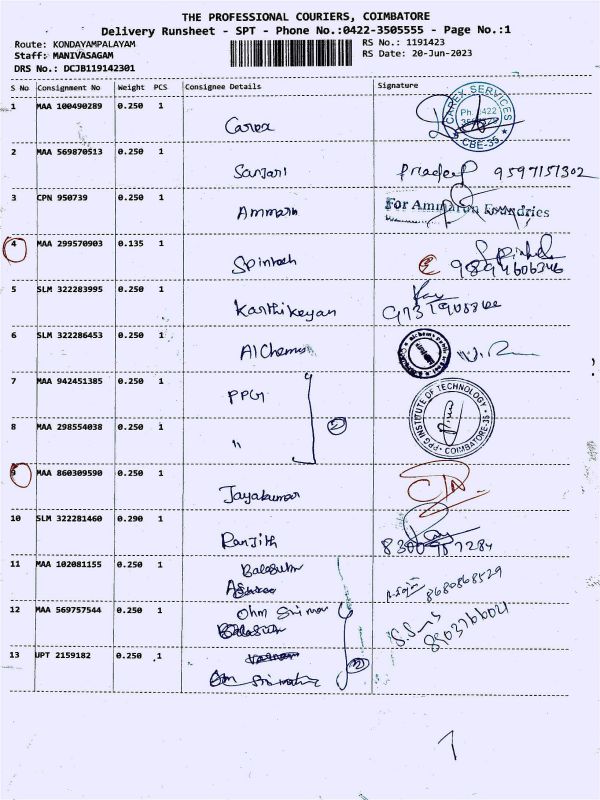 THE PROFESSIONAL COURIERS, COIMBATORE
Delivery Runsheet - SPT - Phone No.:0422-3505555 - Page No.:1
Route: KONDAYAMPALAYAM
Staff: MANIVASAGAM
DRS No.: DCJB119142301
RS No.: 1191423
RS Date: 20-Jun-2023
S No Consignment No Weight PCS Consignee Details Signature
1 MAA 100490289 0.250 1
Carex
CAREX SERVICES
Ph. 0422
CBE-35
2 MAA 569870513 0.250 1
Sanjari Pradeep 9597151302
3 CPN 950739 0.250 1
Ammarun For Ammarun Foundries
4 MAA 299570903 0.135 1
Spintech 9894606346
5 SLM 322283995 0.250 1
Karthikeyan
6 SLM 322286453 0.250 1
AlChemus
7 MAA 942451385 0.250 1
PPG
PPG INSTITUTE OF TECHNOLOGY
COIMBATORE-35
8 MAA 298554038 0.250 1
" 2
9 MAA 860309590 0.250 1
Jayakumar
10 SLM 322281460 0.290 1
Ranjith 8300987284
11 MAA 102081155 0.250 1
8680868529
12 MAA 569757544 0.250 1
Ohm
13 UPT 2159182 0.250 1
2
1